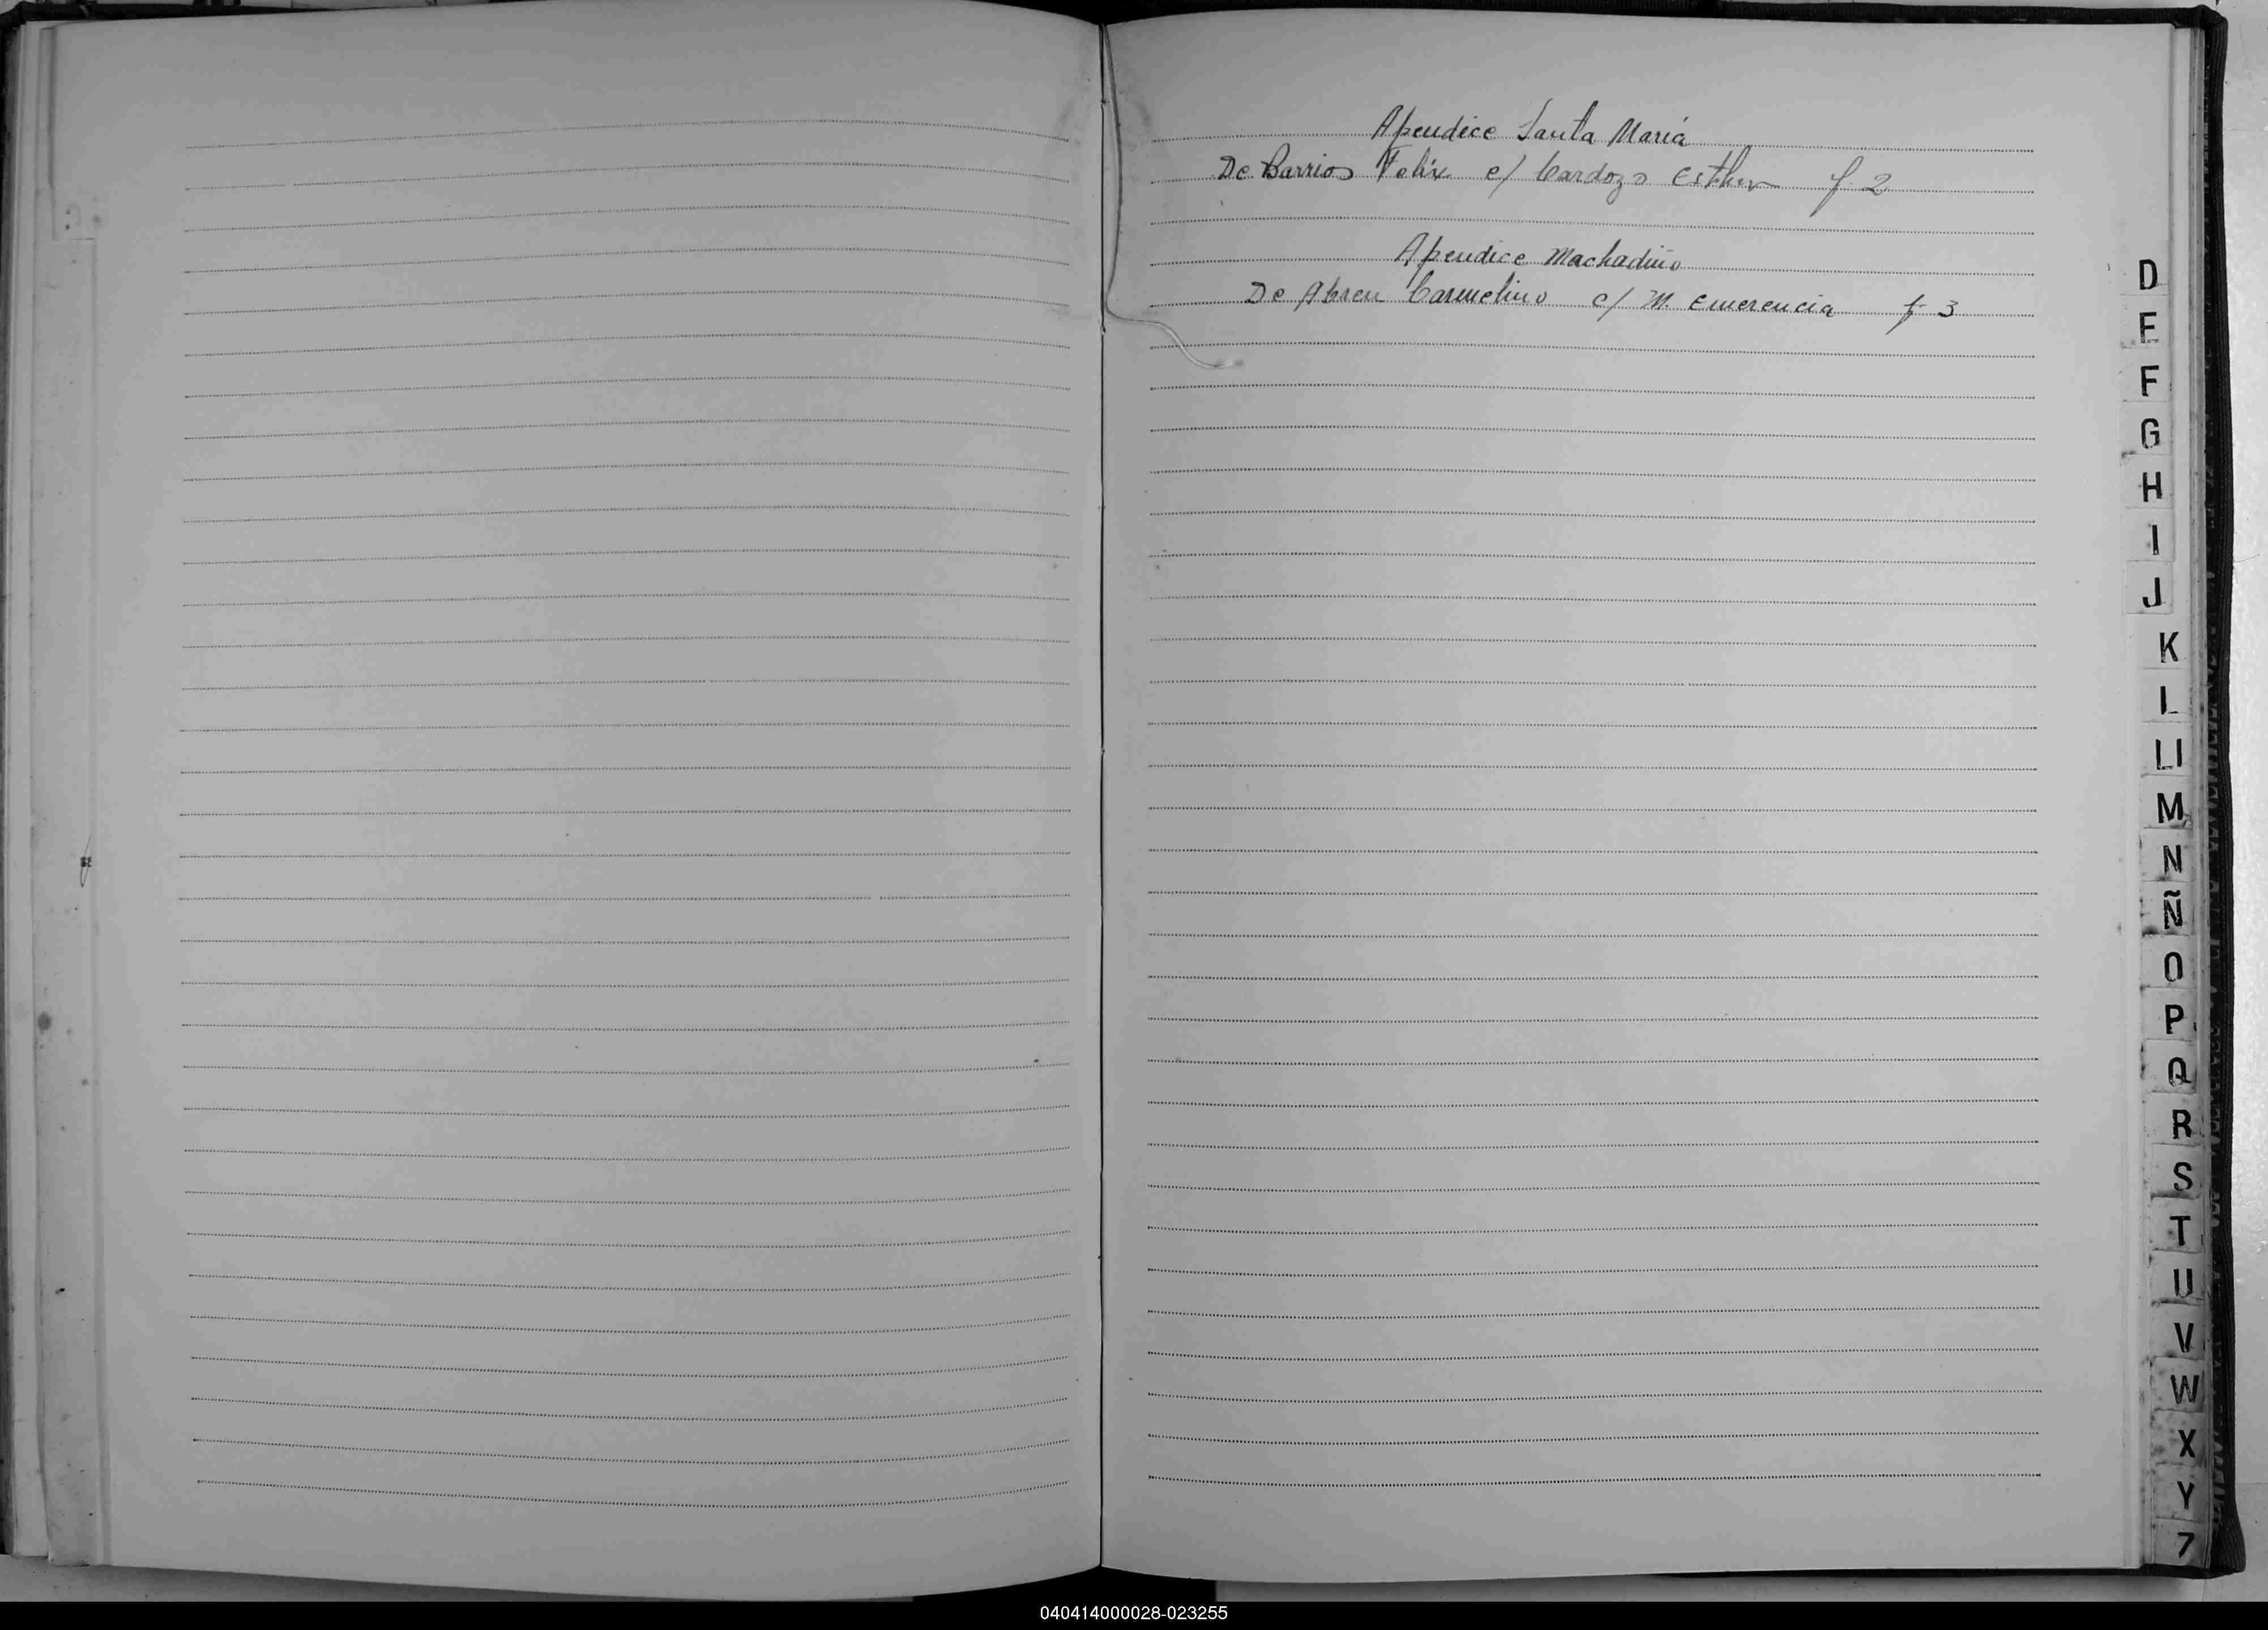 Apendice Santa María
De Barrios Felix c/ Cardozo Esther f. 2
Apendice Machadiño
De Abreu Carmelino c/ M. Emerencia f 3
D
E
F
G
H
I
J
K
L
Ll
M
N
Ñ
O
P
Q
R
S
T
U
V
W
X
Y
Z
040414000028-023255